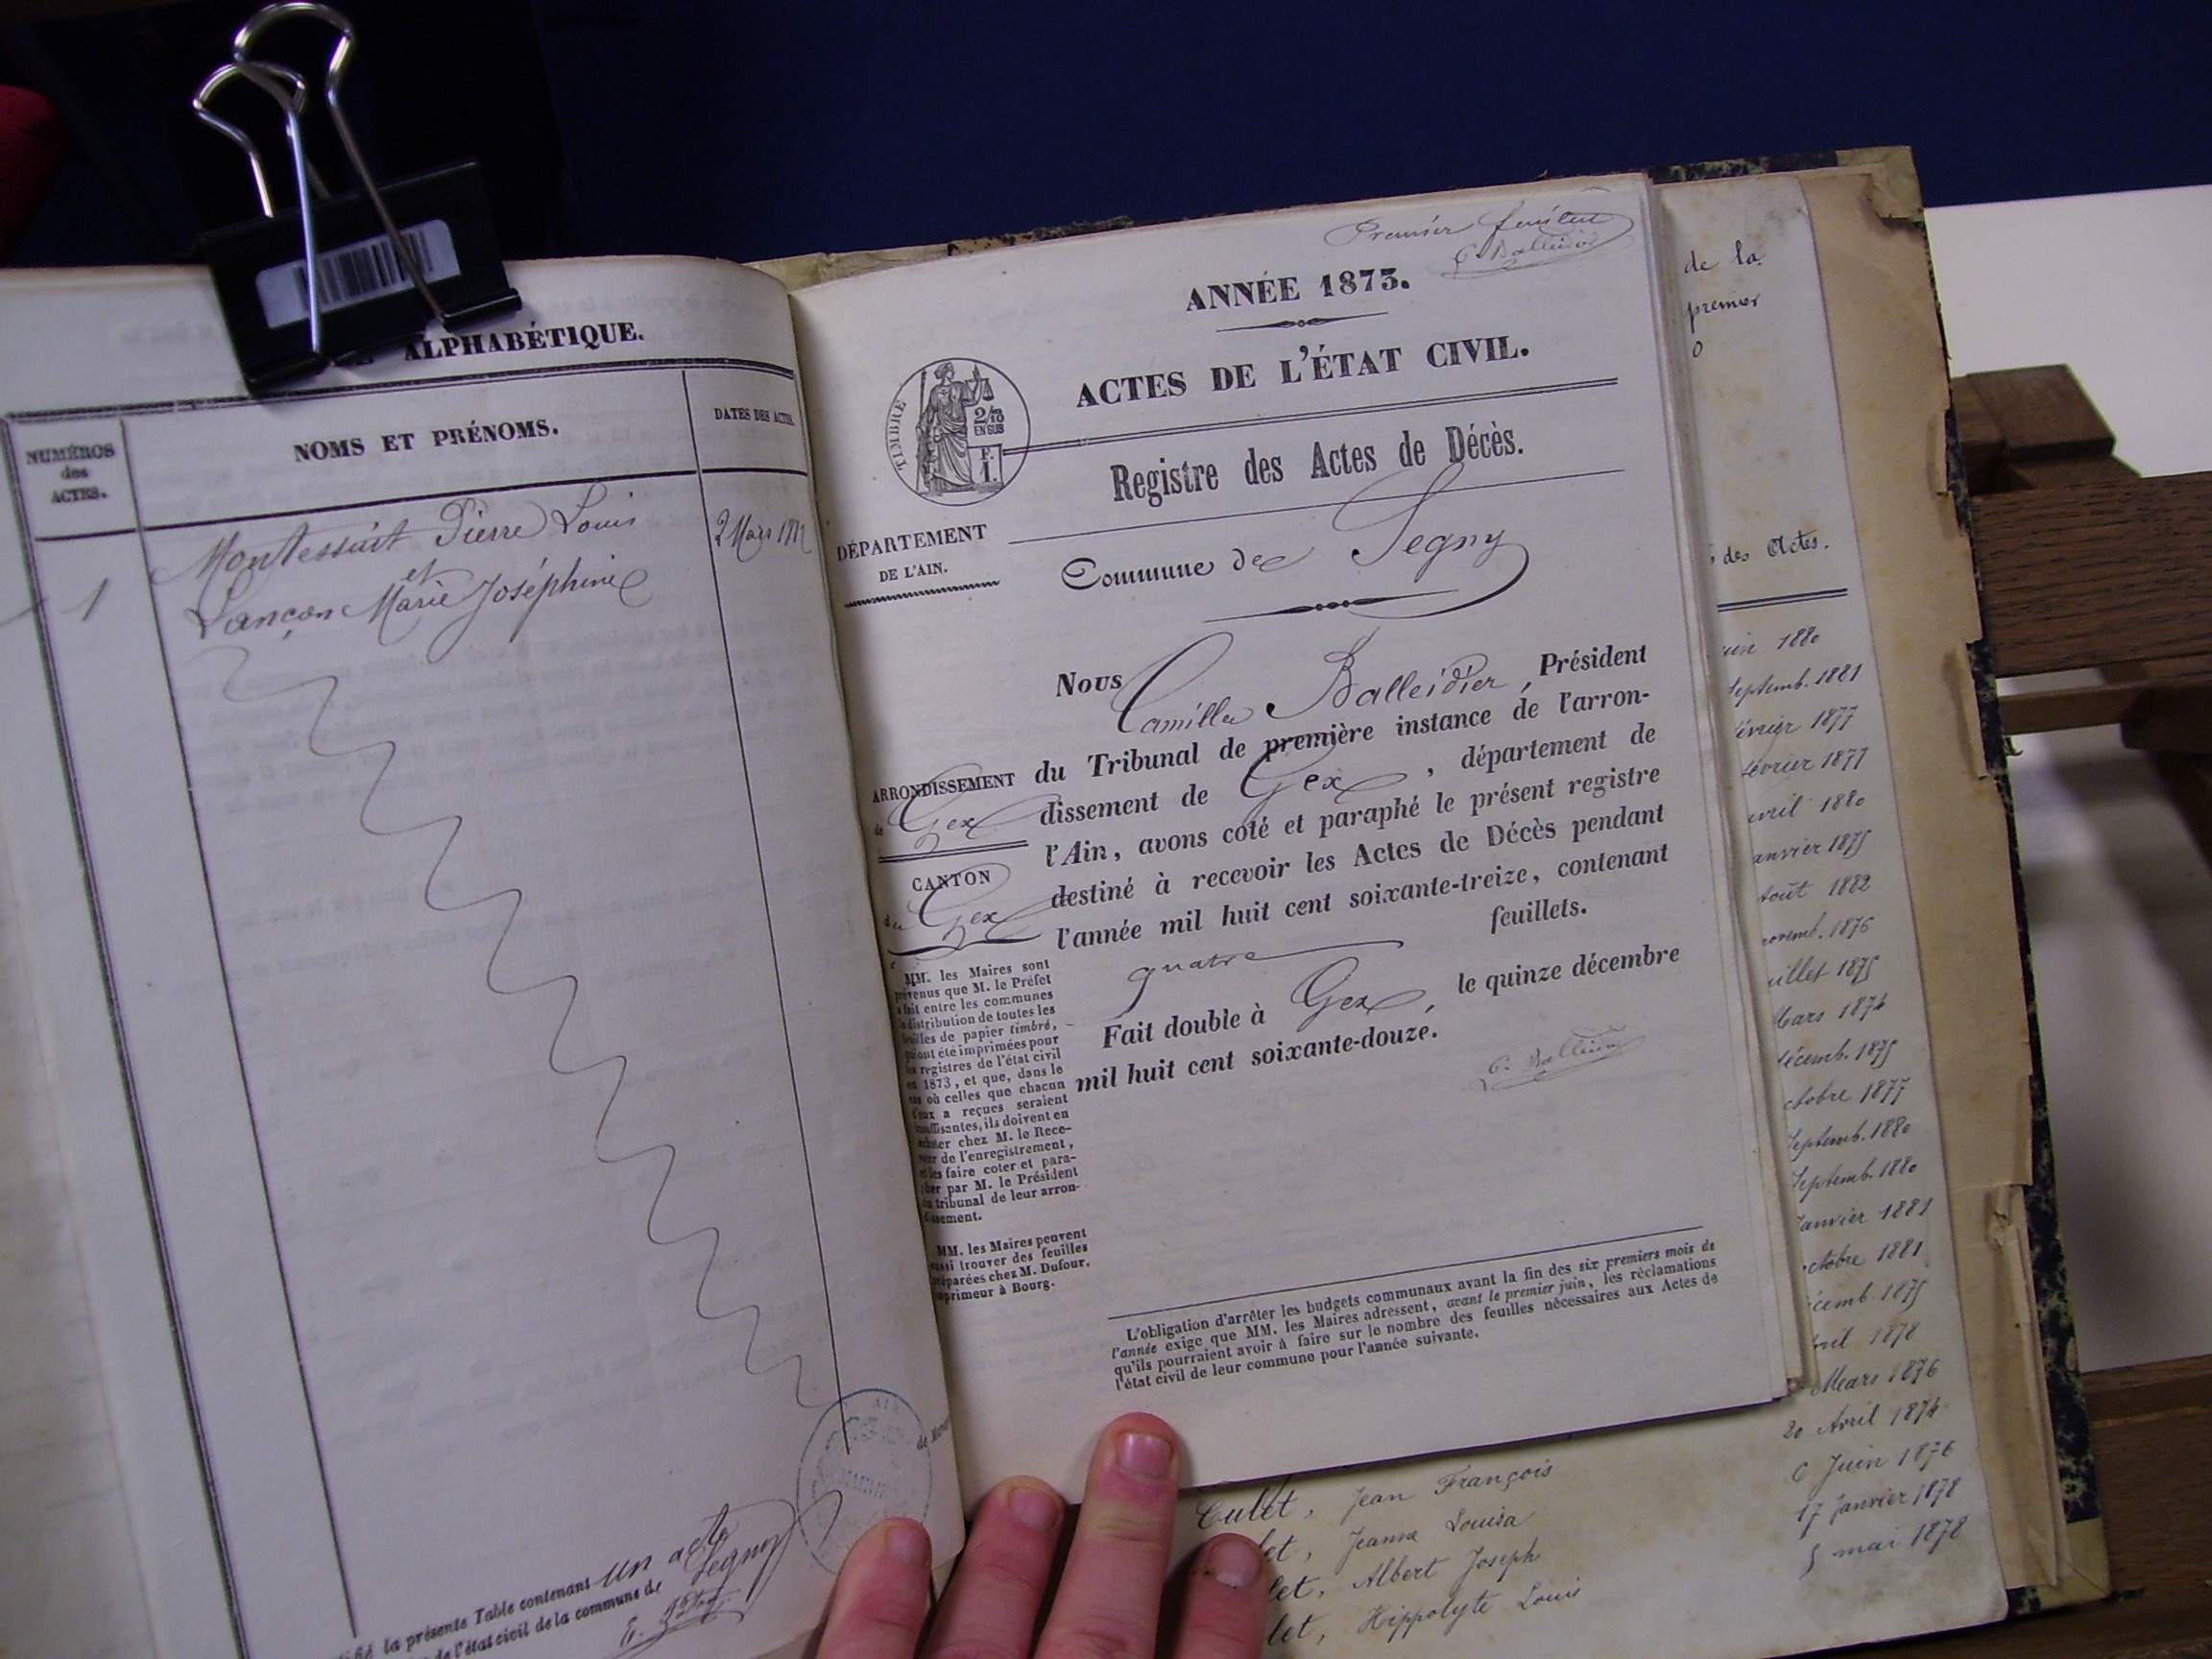 ALPHABÉTIQUE.
NUMÉROS
des
ACTES.
NOMS ET PRÉNOMS.
DATES DES ACTES.
1
Montessuit Pierre Louis
et
Lançon Marie Joséphine
2 Mars
la présente Table contenant un acte
de l'état civil de la commune de Segny
Premier feuillet
C. Balleidier
ANNÉE 1873.
ACTES DE L'ÉTAT CIVIL.
TIMBRE
2/10
EN SUS
F.
1.
Registre des Actes de Décès.
DÉPARTEMENT
DE L'AIN.
Commune de Segny
Nous Camille Balleidier, Président
du Tribunal de première instance de l'arron-
dissement de Gex, département de
l'Ain, avons coté et paraphé le présent registre
destiné à recevoir les Actes de Décès pendant
l'année mil huit cent soixante-treize, contenant
quatre feuillets.
Fait double à Gex, le quinze décembre
mil huit cent soixante-douze.
C. Balleidier
ARRONDISSEMENT
de Gex
CANTON
de Gex
MM. les Maires sont
prévenus que M. le Préfet
a fait entre les communes
la distribution de toutes les
feuilles de papier timbré,
qui ont été imprimées pour
les registres de l'état civil
en 1873, et que, dans le
cas où celles que chacun
d'eux a reçues seraient
insuffisantes, ils doivent en
acheter chez M. le Rece-
veur de l'enregistrement,
et les faire coter et para-
pher par M. le Président
du tribunal de leur arron-
dissement.
MM. les Maires peuvent
aussi trouver des feuilles
préparées chez M. Dufour,
imprimeur à Bourg.
L'obligation d'arrêter les budgets communaux avant la fin des six premiers mois de
l'année exige que MM. les Maires adressent, avant le premier juin, les réclamations
qu'ils pourraient avoir à faire sur le nombre des feuilles nécessaires aux Actes de
l'état civil de leur commune pour l'année suivante.
de la
premier
0
des Actes.
uin 1880
Septemb. 1881
évrier 1877
évrier 1877
avril 1880
anvier 1875
août 1882
novemb. 1876
uillet 1875
Mars 1874
décemb. 1875
ctobre 1877
Septemb. 1880
Septemb. 1880
Janvier 1881
ctobre 1881
écemb. 1875
vril 1878
Mars 1876
20 Avril 1874
6 Juin 1876
17 Janvier 1878
5 mai 1878
Culet, Jean François
let, Jeanne Louisa
let, Albert Joseph
let, Hippolyte Louis